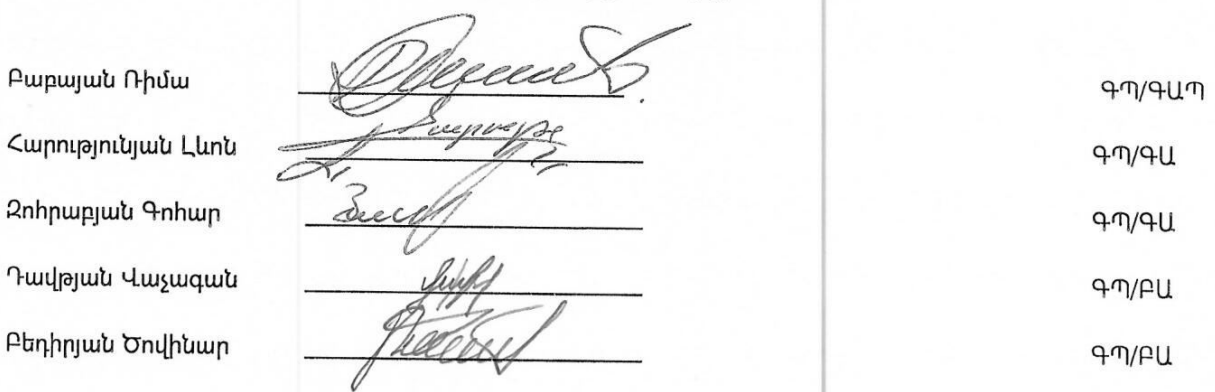 Բաբայան Ռիմա ԳՊ/ԳԱՊ
Հարությունյան Լևոն ԳՊ/ԳԱ
Զոհրաբյան Գոհար ԳՊ/ԳԱ
Դավթյան Վաչագան ԳՊ/ԲԱ
Բեդիրյան Ծովինար ԳՊ/ԲԱ